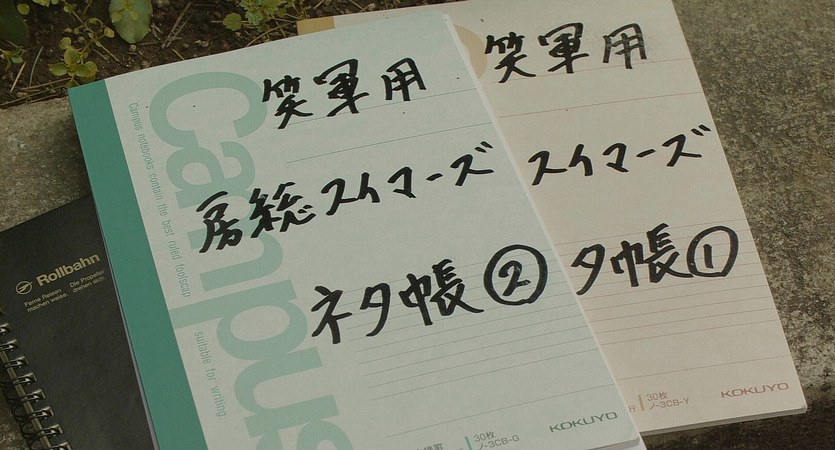 笑軍用
房総スイマーズ
ネタ帳②
Campus
Campus notebooks contain the best ruled foolscap
suitable for writing
30枚
ノ-3CB-G
KOKUYO
笑軍用
スイマーズ
タ帳①
30枚
ノ-3CB-Y
KOKUYO
Rollbahn
Ferne Reisen
machen weise.
Die Propeller
drehen sich